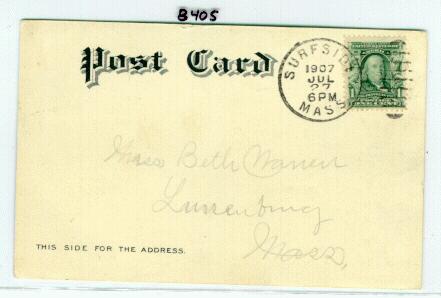 B405
Post Card
SURFSIDE
1907
JUL
27
6PM
MASS
Miss Beth Warren
Lunenburg
Mass,
THIS SIDE FOR THE ADDRESS.